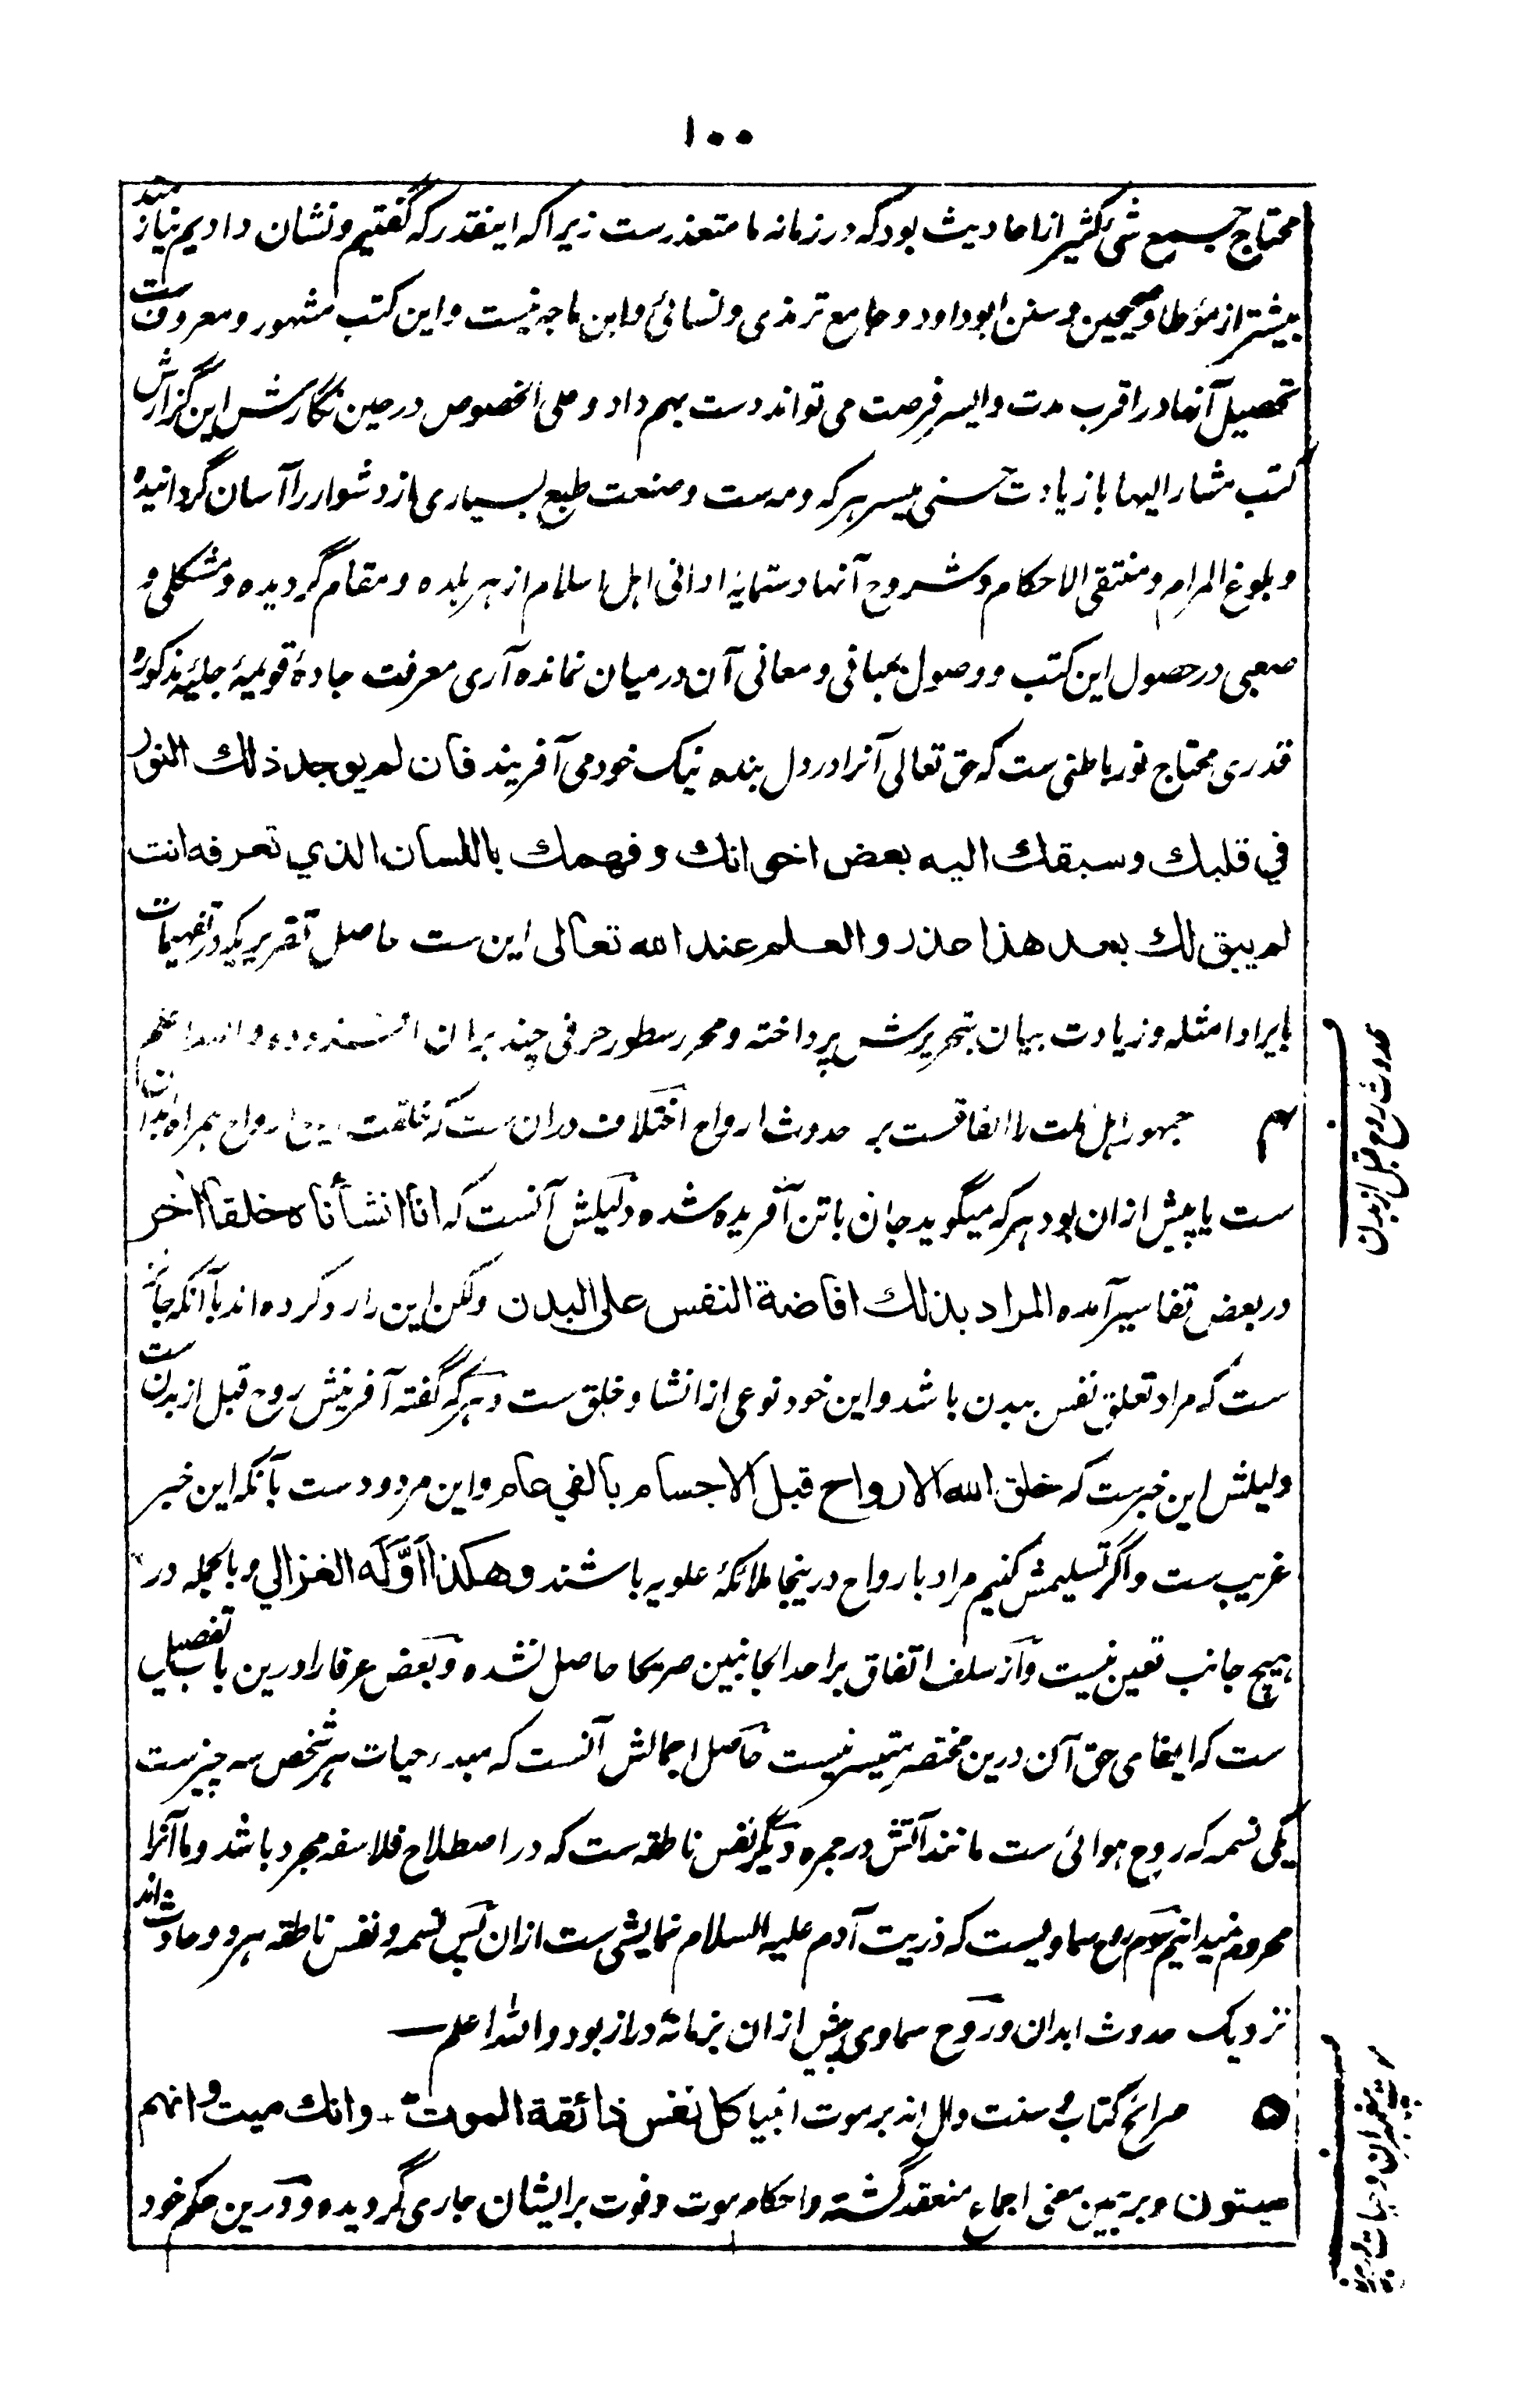 ۱۰۰
محتاج جمع شی کثیر از احادیث بود که در زمانه ما متعذرست زیرا که اینقدر که گفتیم و نشان دادیم نیازمند
بیشتر از مؤطا و صحیحین و سنن ابو داود و جامع ترمذی و نسائی و ابن ماجه نیست و این کتب مشهور و معروف ست
تحصیل آنها در اقرب مدت و ایسر فرصت می تواند دست بهم داد و علی الخصوص در حین نگارش این گزارش
کتب مشار الیها با زیادت حسنی میسر هر که و مه ست و صنعت طبع بسیاری از دشوار را آسان گردانیده
و بلوغ المرام و منتقی الاحکام و شروح آنها دستمایه ادانی اهل اسلام از هر بلده و مقام گردیده و مشکلی و
صعبی در حصول این کتب و وصول بمبانی و معانی آن در میان نمانده آری معرفت جادهٔ قویمهٔ جلیهٔ مذکوره
قدری محتاج نور باطنی ست که حق تعالی آنرا در دل بنده نیک خود می آفریند فان لم یوجد ذلك النور
في قلبك وسبقك اليه بعض اخوانك وفهمك باللسان الذي تعرفه انت
لم يبق لك بعد هذا عذر والعلم عند الله تعالی این ست حاصل تقریریکه در تفهیمات
بایراد امثله و زیادت بیان بتحریرش پرداخته و محرر سطور حرفی چند بران افزوده و الله اعلم
۴ جمهور اهل ملت را اتفاقست بر حدوث ارواح اختلاف دران ست که خلقت ارواح همراه ابدان
ست یا پیش ازان بود هر که میگوید جان با تن آفریده شده دلیلش آنست که انا انشأناه خلقا اٰخر
در بعض تفاسیر آمده المراد بذلك افاضة النفس على البدن ولکن این را رد کرده اند بآنکه جائز
ست که مراد تعلق نفس ببدن باشد و این خود نوعی از انشا و خلق ست و هر که گفته آفرینش روح قبل از بدن ست
دلیلش این خبرست که خلق الله الارواح قبل الاجسام بالفي عام و این مردودست بآنکه این خبر
غریب ست و اگر تسلیمش کنیم مراد بارواح درینجا ملائکهٔ علویه باشند وهكذا اوّله الغزالي و بالجمله در
هیچ جانب تعین نیست و از سلف اتفاق بر احد الجانبین صریحا حاصل نشده و بعض عرفا را درین باب تفصیلی
ست که ایفای حق آن درین مختصر متیسر نیست حاصل اجمالش آنست که مبدء حیات هر شخص سه چیزست
یکی نسمه که روح هوائی ست مانند آتش در جمره دیگر نفس ناطقه ست که در اصطلاح فلاسفه مجرد باشد و ما آنرا
مجرد نمیدانیم سوم روح سماویست که ذریت آدم علیه السلام نمایشی ست ازان پس نسمه و نفس ناطقه هر دو حادث اند
نزدیک حدوث ابدان و روح سماوی پیش ازان بزمانهٔ دراز بود والله اعلم
۵ صرائح کتاب و سنت دال اند بر موت انبیا كل نفس ذائقة الموت وانك ميت وانهم
ميتون و برهمین معنی اجماع منعقد گشته و احکام موت و فوت بر ایشان جاری گردیده و درین حکم خود
حدوث روح قبل از بدن
پیغمبران و حیات